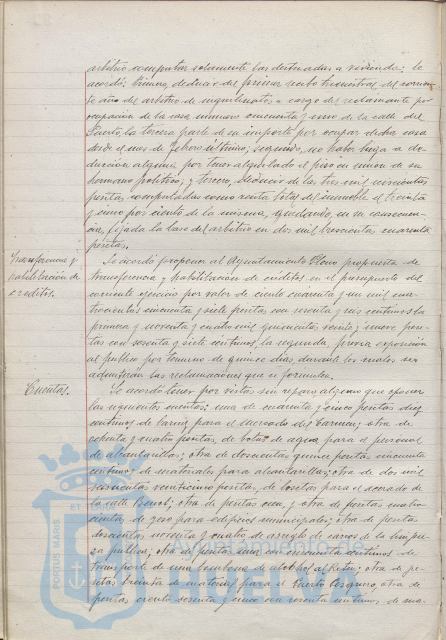 arbitrio computar solamente las destinadas a vivienda; se
acordó: primero, deducir del primer recibo trimestral del corrien-
te año del arbitrio de inquilinatos a cargo del reclamante por
ocupación de la casa número cincuenta y uno de la calle del
Puerto, la tercera parte de su importe por ocupar dicha casa
desde el mes de Febrero último; segundo, no haber lugar a de-
ducción alguna por tener alquilado el piso en unión de su
hermano político, y tercero, deducir de las tres mil seiscientas
pesetas computadas como renta total del inmueble el treinta
y cinco por ciento de la misma, quedando, en su consecuen-
cia, fijada la base del arbitrio en dos mil trescientas cuarenta
pesetas.
Transferencia y
habilitación de
creditos.
Se acordó proponer al Ayuntamiento Pleno propuesta de
transferencia y habilitación de créditos en el presupuesto del
corriente ejercicio por valor de ciento cuarenta y un mil cua-
trocientas cincuenta y siete pesetas con noventa y seis centimos la
primera y noventa y cuatro mil quinientas veinte y nueve pese-
tas con sesenta y siete centimos, la segunda, previa exposición
al público por termino de quince dias, durante los cuales se
admitirán las reclamaciones que se formulen.
Cuentas.
Se acordó tener por vistas sin reparo alguno que oponer
las siguientes cuentas: una de cuarenta y cinco pesetas diez
centimos de barniz para el mercado del Carmen; otra de
ochenta y cuatro pesetas, de botas de agua para el personal
de alcantarillas; otra de doscientas quince pesetas cincuenta
centimos de materiales para alcantarillas; otra de dos mil
seiscientas veinticinco pesetas, de losetas para el acerado de
la calle Benot; otra de pesetas cien, y otra de pesetas cuatro-
cientas, de yeso para edificios municipales; otra de pesetas
doscientas noventa y cuatro de arreglo de carros de la limpie-
za pública; otra de pesetas una con cincuenta centimos de
transporte de una bombona de alcohol al Retén; otra de pe-
setas treinta de material para el Puerto Pesquero; otra de
pesetas ciento sesenta y cinco con sesenta centimos, de ma-
Ayuntamiento de
PORTUS MAGNUS
ET